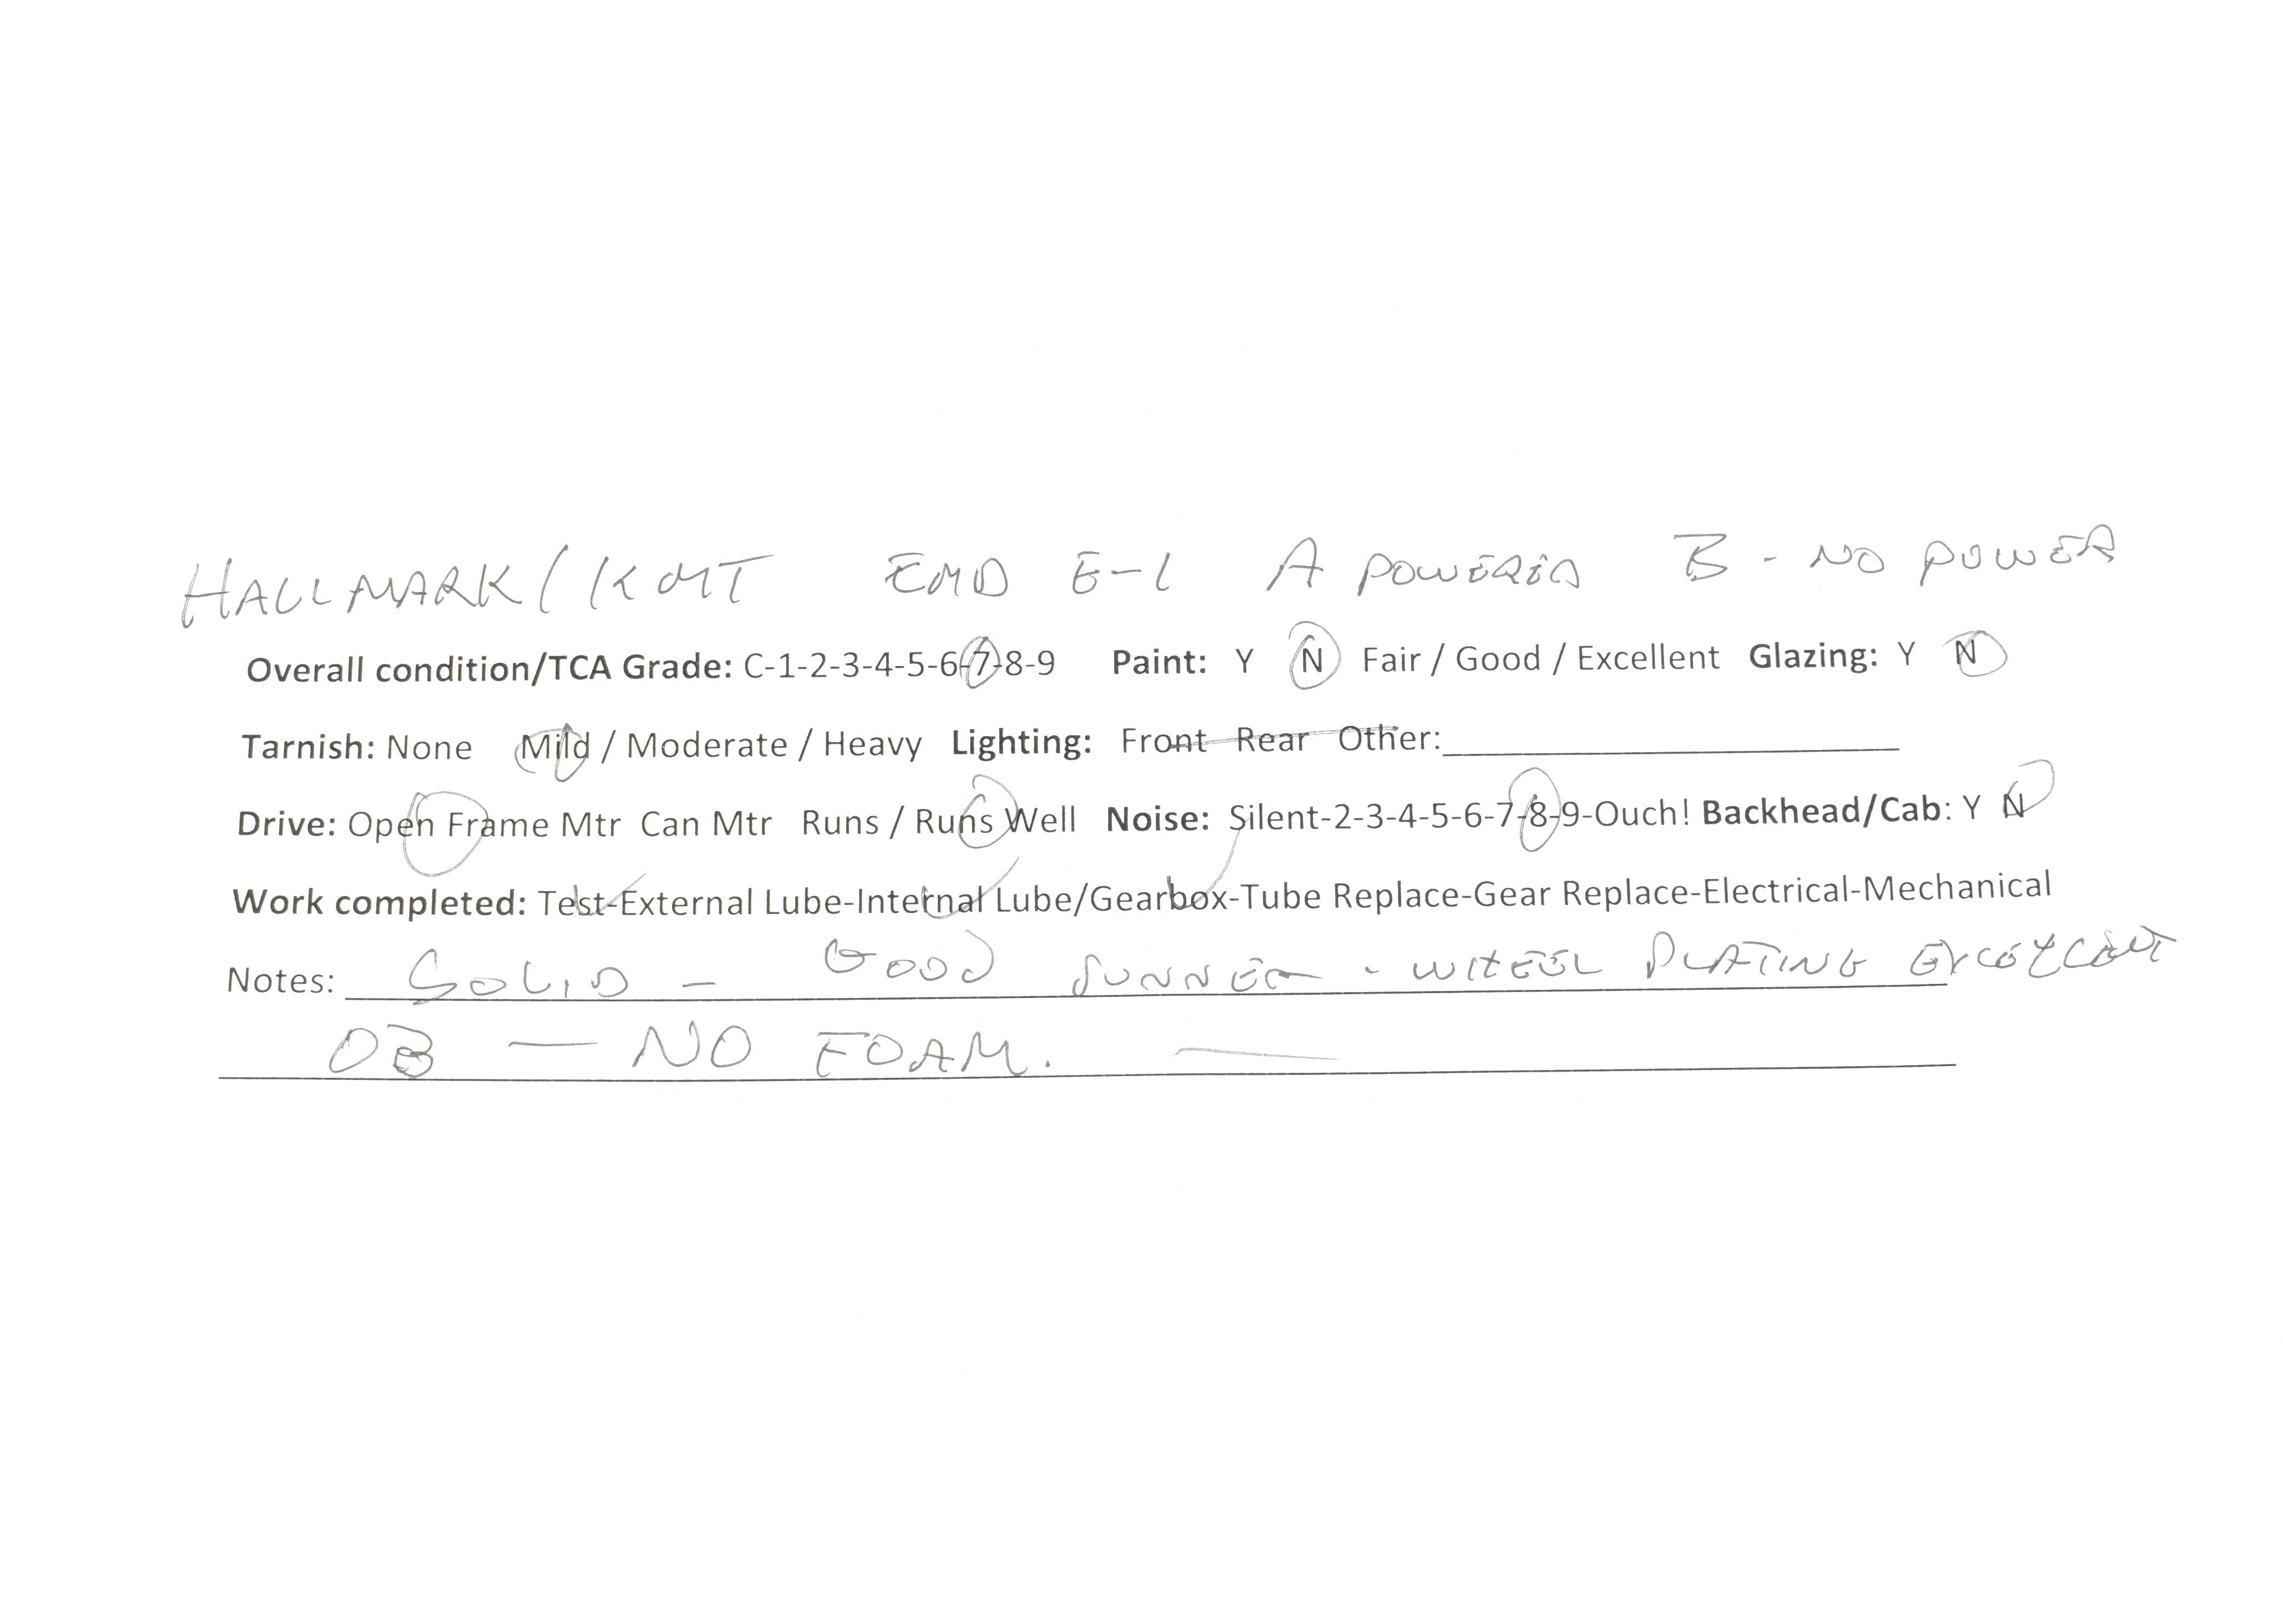 HALLMARK / KMT EMD E-1 A POWERED B - NO POWER
Overall condition/TCA Grade: C-1-2-3-4-5-6-7-8-9 Paint: Y N Fair / Good / Excellent Glazing: Y N
Tarnish: None Mild / Moderate / Heavy Lighting: Front Rear Other:
Drive: Open Frame Mtr Can Mtr Runs / Runs Well Noise: Silent-2-3-4-5-6-7-8-9-Ouch! Backhead/Cab: Y N
Work completed: Test-External Lube-Internal Lube/Gearbox-Tube Replace-Gear Replace-Electrical-Mechanical
Notes: SOLID - GOOD RUNNER - WHEEL PLATING EXCELLENT
OB - NO FOAM. -